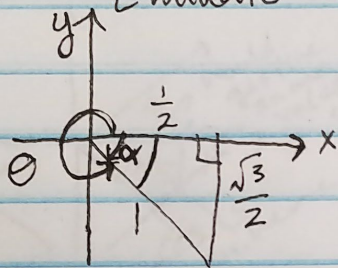 y
1/2
x
θ
α
√3/2
1